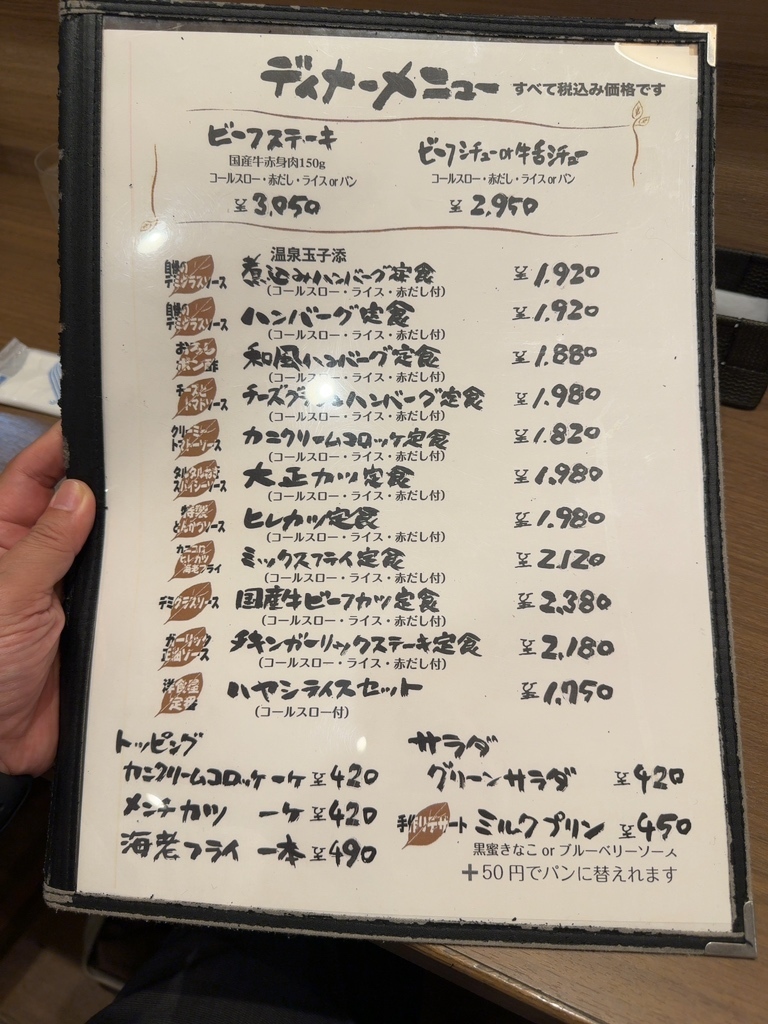 ディナーメニュー すべて税込み価格です
ビーフステーキ
国産牛赤身肉150g
コールスロー・赤だし・ライス or パン
¥3,050
ビーフシチュー or 牛舌シチュー
コールスロー・赤だし・ライス or パン
¥2,950
温泉玉子添
自慢の デミグラスソース 煮込みハンバーグ定食 ¥1,920
(コールスロー・ライス・赤だし付)
自慢の デミグラスソース ハンバーグ定食 ¥1,920
(コールスロー・ライス・赤だし付)
おろし ポン酢 和風ハンバーグ定食 ¥1,880
(コールスロー・ライス・赤だし付)
チーズと トマトソース チーズグラタンハンバーグ定食 ¥1,980
(コールスロー・ライス・赤だし付)
クリーミー トマトソース カニクリームコロッケ定食 ¥1,820
(コールスロー・ライス・赤だし付)
タルタル付き スパイシーソース 大正カツ定食 ¥1,980
(コールスロー・ライス・赤だし付)
特製 とんかつソース ヒレカツ定食 ¥1,980
(コールスロー・ライス・赤だし付)
カニコロ ヒレカツ 海老フライ ミックスフライ定食 ¥2,120
(コールスロー・ライス・赤だし付)
デミグラスソース 国産牛ビーフカツ定食 ¥2,380
(コールスロー・ライス・赤だし付)
ガーリック 正油ソース チキンガーリックステーキ定食 ¥2,180
(コールスロー・ライス・赤だし付)
洋食屋 定番 ハヤシライスセット ¥1,750
(コールスロー付)
トッピング
カニクリームコロッケ 一ケ ¥420
メンチカツ 一ケ ¥420
海老フライ 一本 ¥490
サラダ
グリーンサラダ ¥420
手作りデザート ミルクプリン ¥450
黒蜜きなこ or ブルーベリーソース
＋50円でパンに替えれます